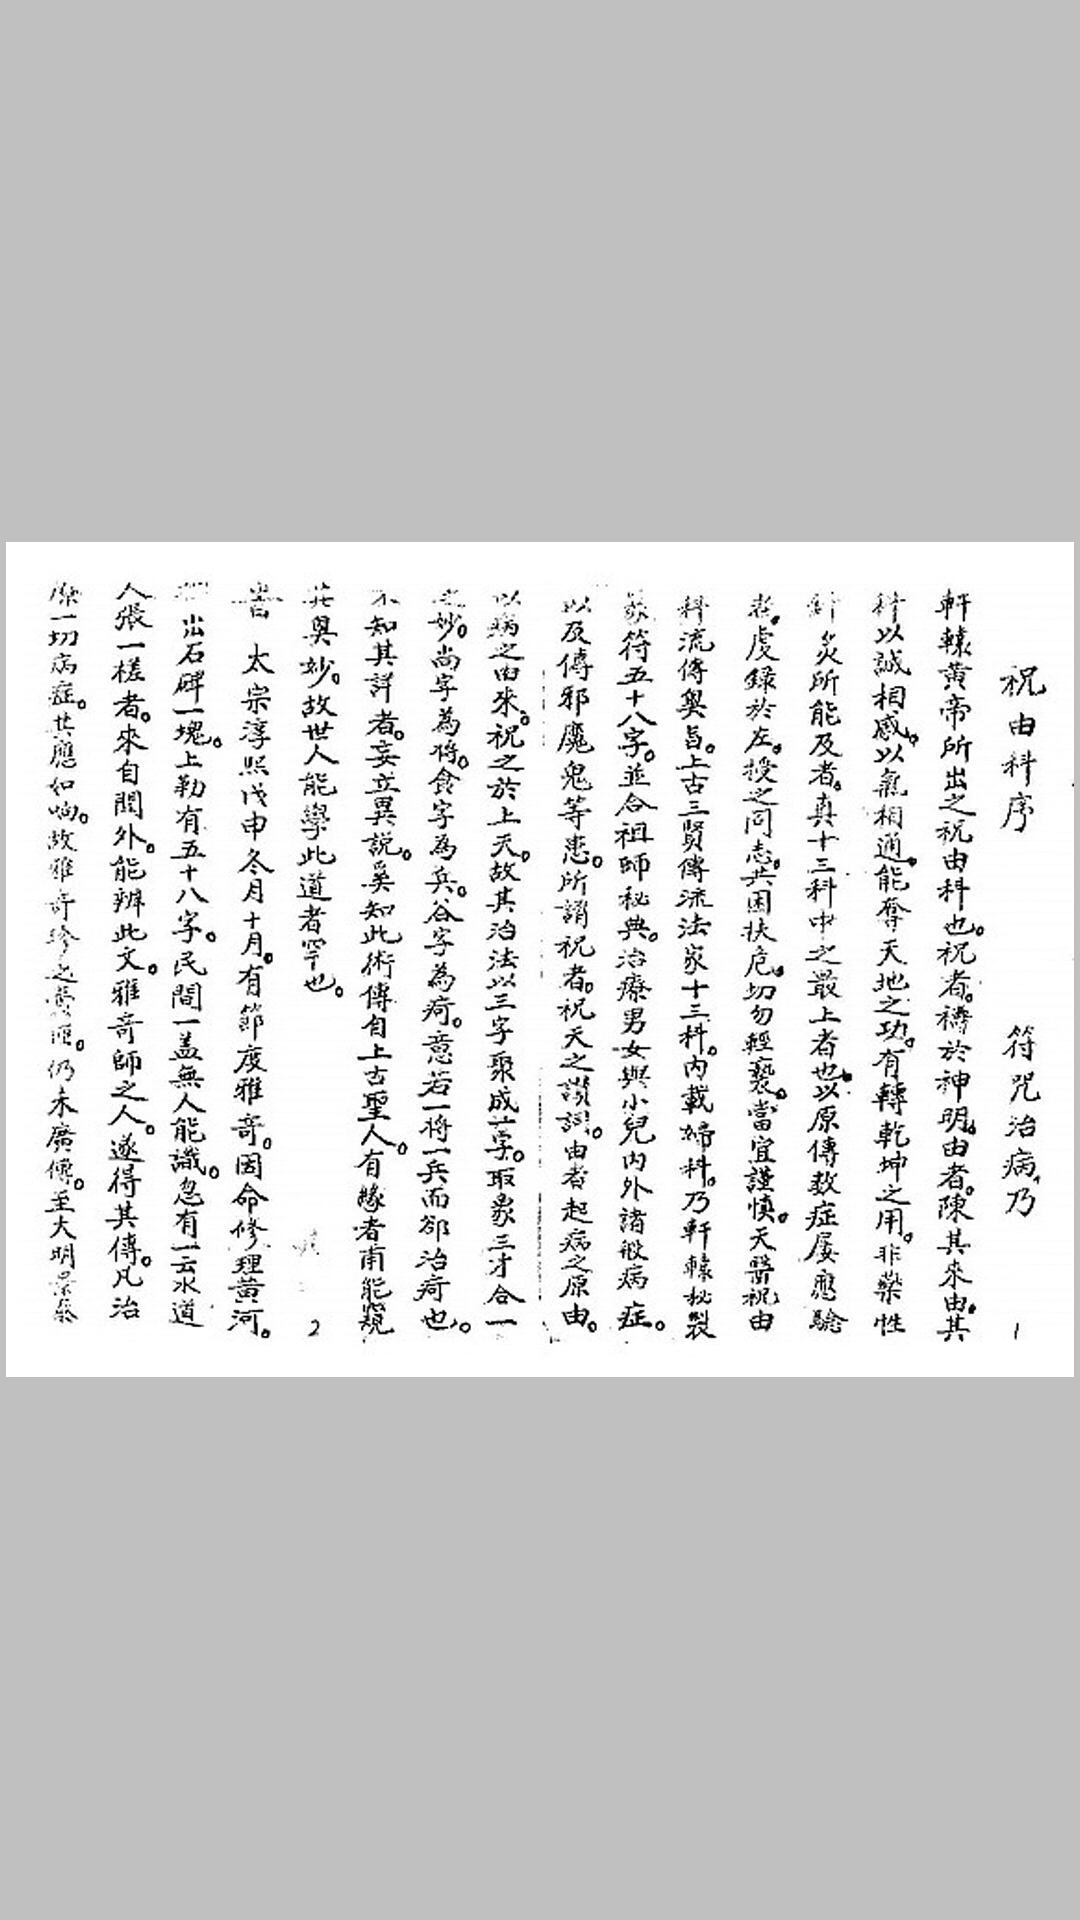 祝由科序 符咒治病乃 1
軒轅黃帝所出之祝由科也。祝者。禱於神明。由者。陳其來由。其
科以誠相感。以氣相通。能奪天地之功。有轉乾坤之用。非藥性
針灸所能及者。真十三科中之最上者也。以原傳教症屢應驗
者。虔錄於左。授之同志。共困扶危。切勿輕褻。當宜謹慎。天醫祝由
科流傳奧旨。上古三賢傳流法家十三科。內載婦科。乃軒轅秘製
篆符五十八字。並合祖師秘典。治療男女與小兒內外諸般病症。
以及傳邪魔鬼等患。所謂祝者。祝天之讚詞。由者起病之原由。
以病之由來。祝之於上天。故其治法以三字聚成一字。取象三才合一
之妙。尚字為將。食字為兵。谷字為疴。意若一將一兵而卻治疴也。
不知其詳者。妄立異說。奚知此術傳自上古聖人。有緣者甫能窺
其奧妙。故世人能學此道者罕也。 2
昔 太宗淳熙戊申冬月十月。有節度雅奇。因命修理黃河。
出石碑一塊。上勒有五十八字。民間一蓋無人能識。忽有一云水道
人張一槎者。來自閩外。能辨此文。雅奇師之人。遂得其傳。凡治
療一切病症。其應如响。故雅奇珍之 仍未廣傳。至大明景泰